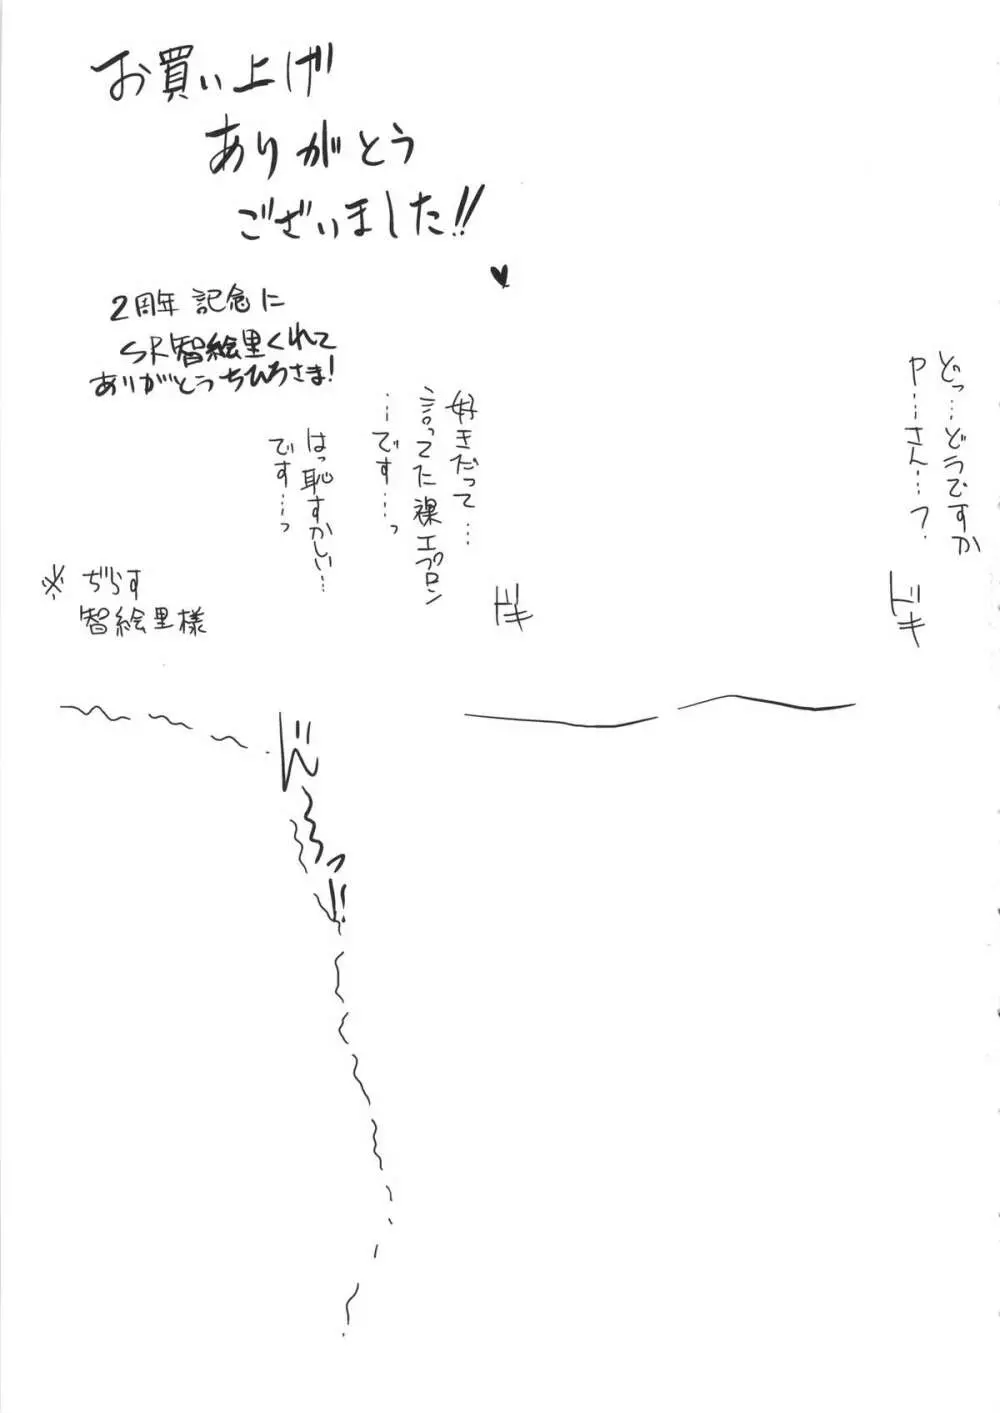 お買い上げ
ありがとう
ございました!!
♥
2周年 記念に
SR智絵里くれて
ありがとうちひろさま!
どっ…どうですか
P…さん…?
好きだって…
言ってた裸エプロン
…です…っ
はっ恥ずかしい…
です…っ
ドキ
ドキ
※ ぢらす
智絵里様